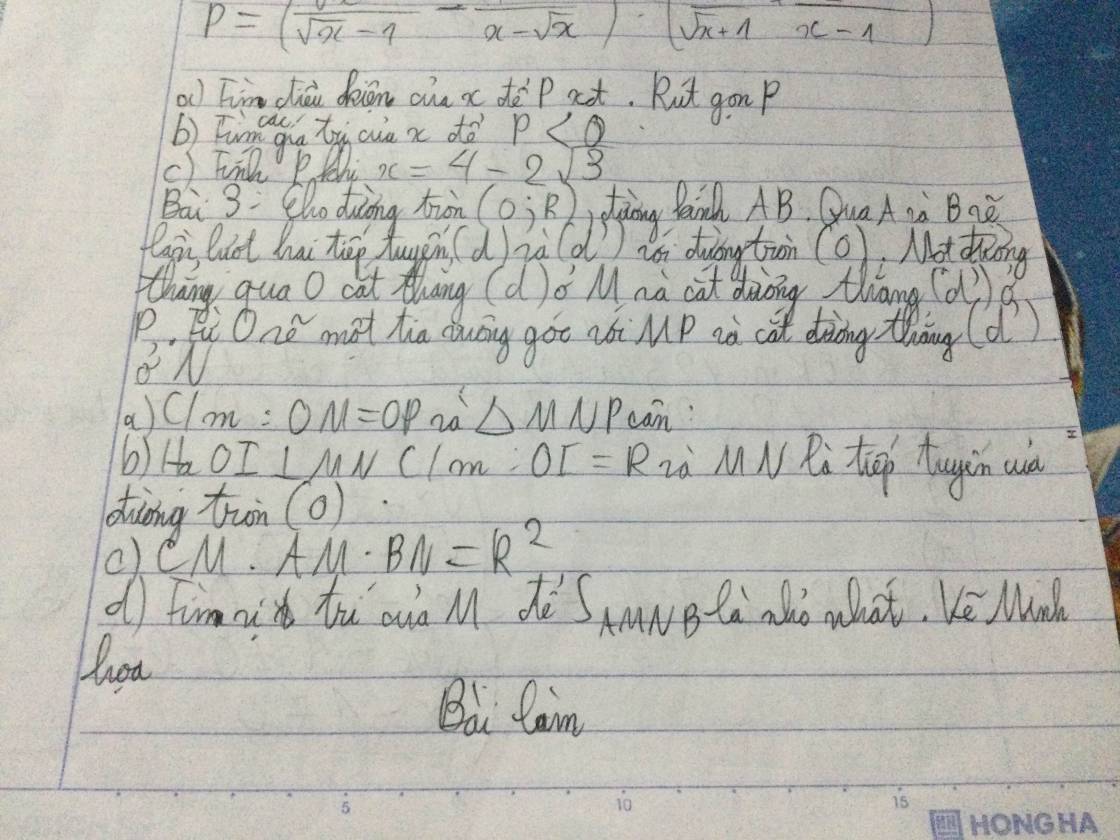 P = ( √x − 1 − x − √x ) : ( √x + 1 x − 1 )
a) Tìm điều kiện của x để P xđ . Rút gọn P
b) Tìm các giá trị của x để P < 0
c) Tính P khi x = 4 − 2√3
Bài 3 : Cho đường tròn (O ; R), đường kính AB . Qua A và B vẽ
lần lượt hai tiếp tuyến (d) và (d') với đường tròn (O) . Một đường
thẳng qua O cắt thẳng (d) ở M và cắt đường thẳng (d') ở
P . Từ O vẽ một tia vuông góc với MP và cắt đường thẳng (d')
ở N
a) C/m : OM = OP và △ MNP cân
b) Hạ OI ⊥ MN C/m : OI = R và MN là tiếp tuyến của
đường tròn (O) .
c) CM . AM . BN = R²
d) Tìm vị trí của M để S_AMNB là nhỏ nhất . Vẽ Minh
họa
Bài làm
5 10 15
HONG HA